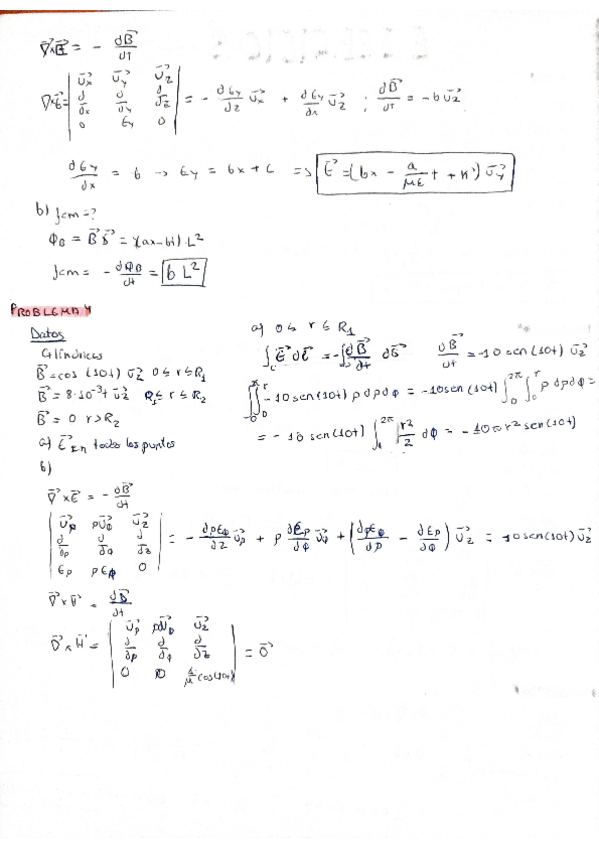 ∇⃗×E⃗ = - dB⃗/dt
∇×E⃗ = | u⃗x u⃗y u⃗z ; d/dx d/dy d/dz ; 0 Ey 0 | = - dEy/dz u⃗x + dEy/dx u⃗z ; dB⃗/dt = -b u⃗z
dEy/dx = b → Ey = bx + C => E⃗ = (bx - a/με t + k') u⃗y
b) fcm = ?
ΦB = B⃗ S⃗ = (ax-bt)·L²
fcm = - dΦB/dt = b L²
PROBLEMA 4
Datos
Cilíndricas
B⃗ = cos(10t) u⃗z 0 ≤ r ≤ R₁
B⃗ = 8·10⁻³t u⃗z R₁ ≤ r ≤ R₂
B⃗ = 0 r > R₂
a) E⃗ en todos los puntos
a) 0 ≤ r ≤ R₁
∫c E⃗ dℓ⃗ = -∫ dB⃗/dt dS⃗ dB⃗/dt = -10 sen(10t) u⃗z
∫∫ -10 sen(10t) ρ dρ dφ = -10 sen(10t) ∫₀^2π ∫₀^r ρ dρ dφ =
= -10 sen(10t) ∫^2π r²/2 dφ = -10π r² sen(10t)
b)
∇⃗×E⃗ = - dB⃗/dt
| u⃗ρ ρu⃗φ u⃗z ; d/dρ d/dφ d/dz ; Eρ ρEφ 0 | = - dρEφ/dz u⃗ρ + ρ dEρ/dφ u⃗φ + (dρEφ/dρ - dEρ/dφ) u⃗z = 10 sen(10t) u⃗z
∇⃗×H⃗ = dD⃗/dt
∇⃗×H⃗ = | u⃗ρ ρu⃗φ u⃗z ; d/dρ d/dφ d/dz ; 0 0 1/μ cos(10t) | = 0⃗